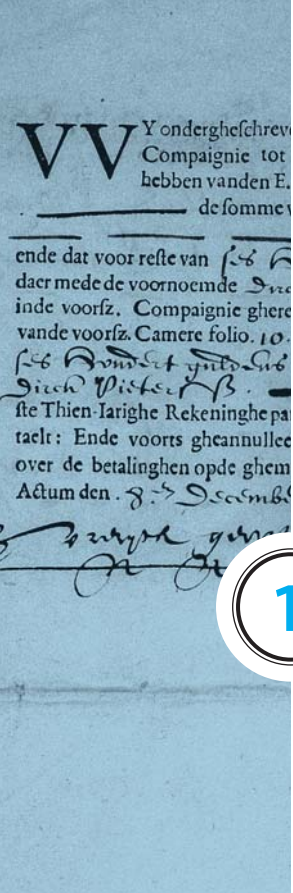 VVY onderghеſchreve
Compaignie tot
hebben vanden E.
de ſomme v
ende dat voor reſte van ſes H
daer mede de voornoemde Dirc
inde voorſz. Compaignie ghere
vande voorſz. Camere folio. 10.
ſes Hondert guldens
Dirck Pieterſz.
ſte Thien-Iarighe Rekeninghe pa
taelt: Ende voorts gheannullee
over de betalinghen opde ghem
Actum den . 8. Decembe
1